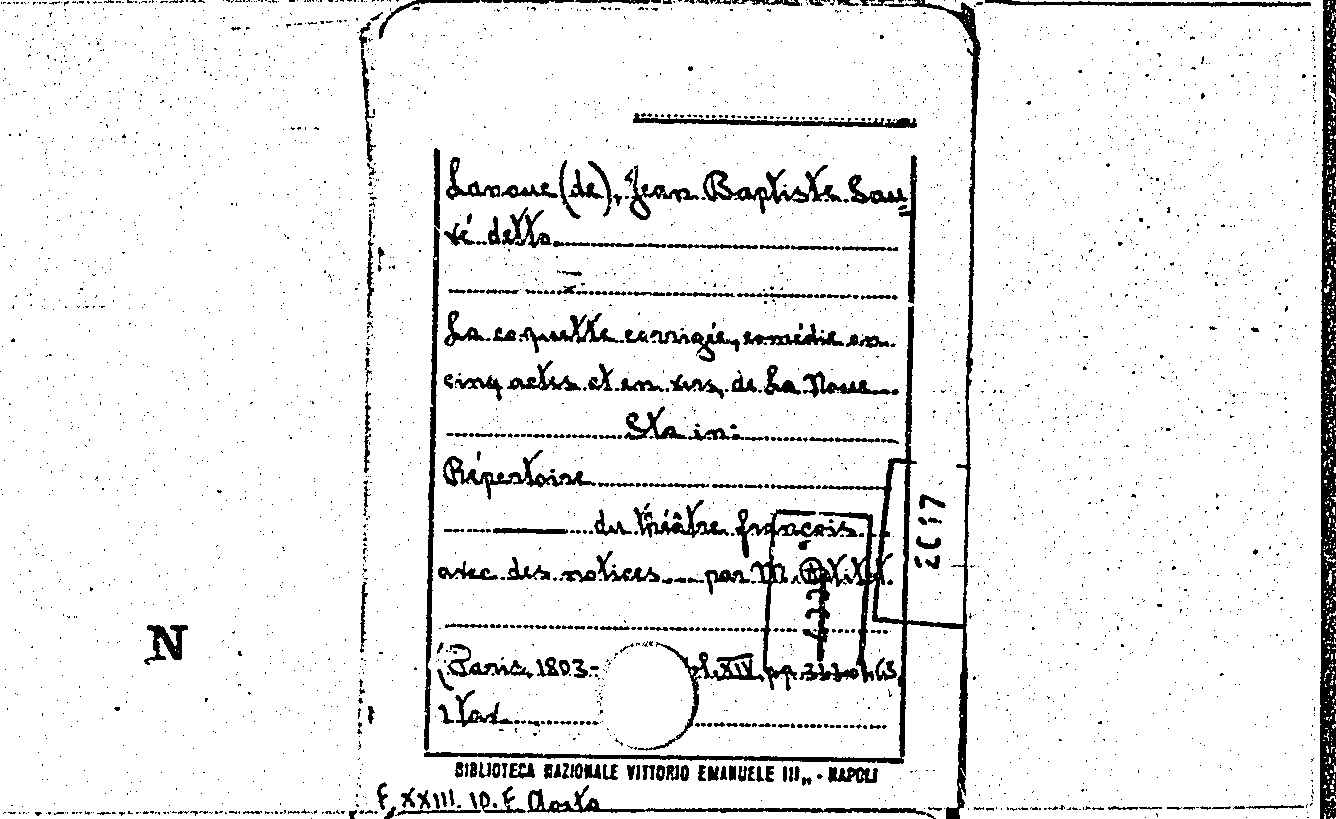 Lanoue (de), Jean Baptiste Sau=
vé detto
La coquette corrigée, comédie en
cinq actes et en vers, de La Noue
Sta in:
Répertoire
du théâtre françois
avec des notices par M. Petitot.
N
(Paris, 1803- vol. XIV, pp.
1 tav.
BIBLIOTECA NAZIONALE VITTORIO EMANUELE III„ - NAPOLI
F. XXIII. 10. F. Aosta